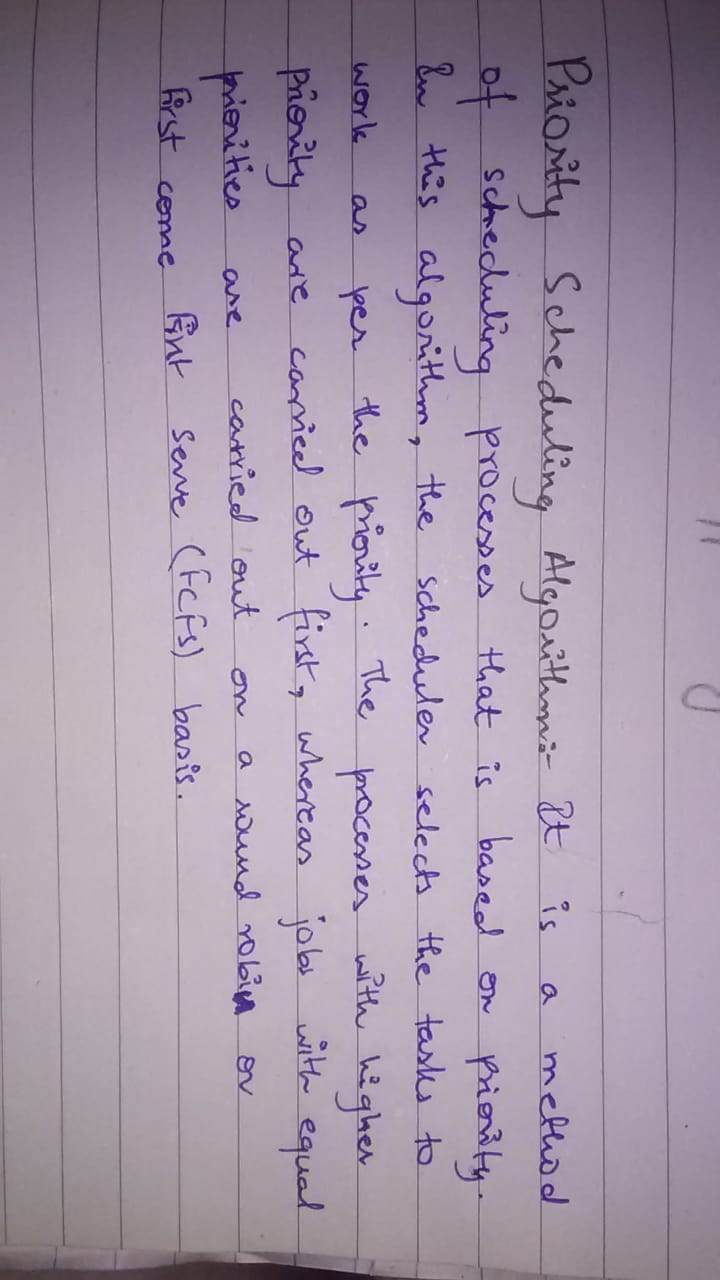 Priority Scheduling Algorithm:- It is a method
of scheduling processes that is based on priority.
In this algorithm, the scheduler selects the tasks to
work as per the priority. The processes with higher
priority are carried out first, whereas jobs with equal
priorities are carried out on a round robin or
first come first serve (FCFS) basis.